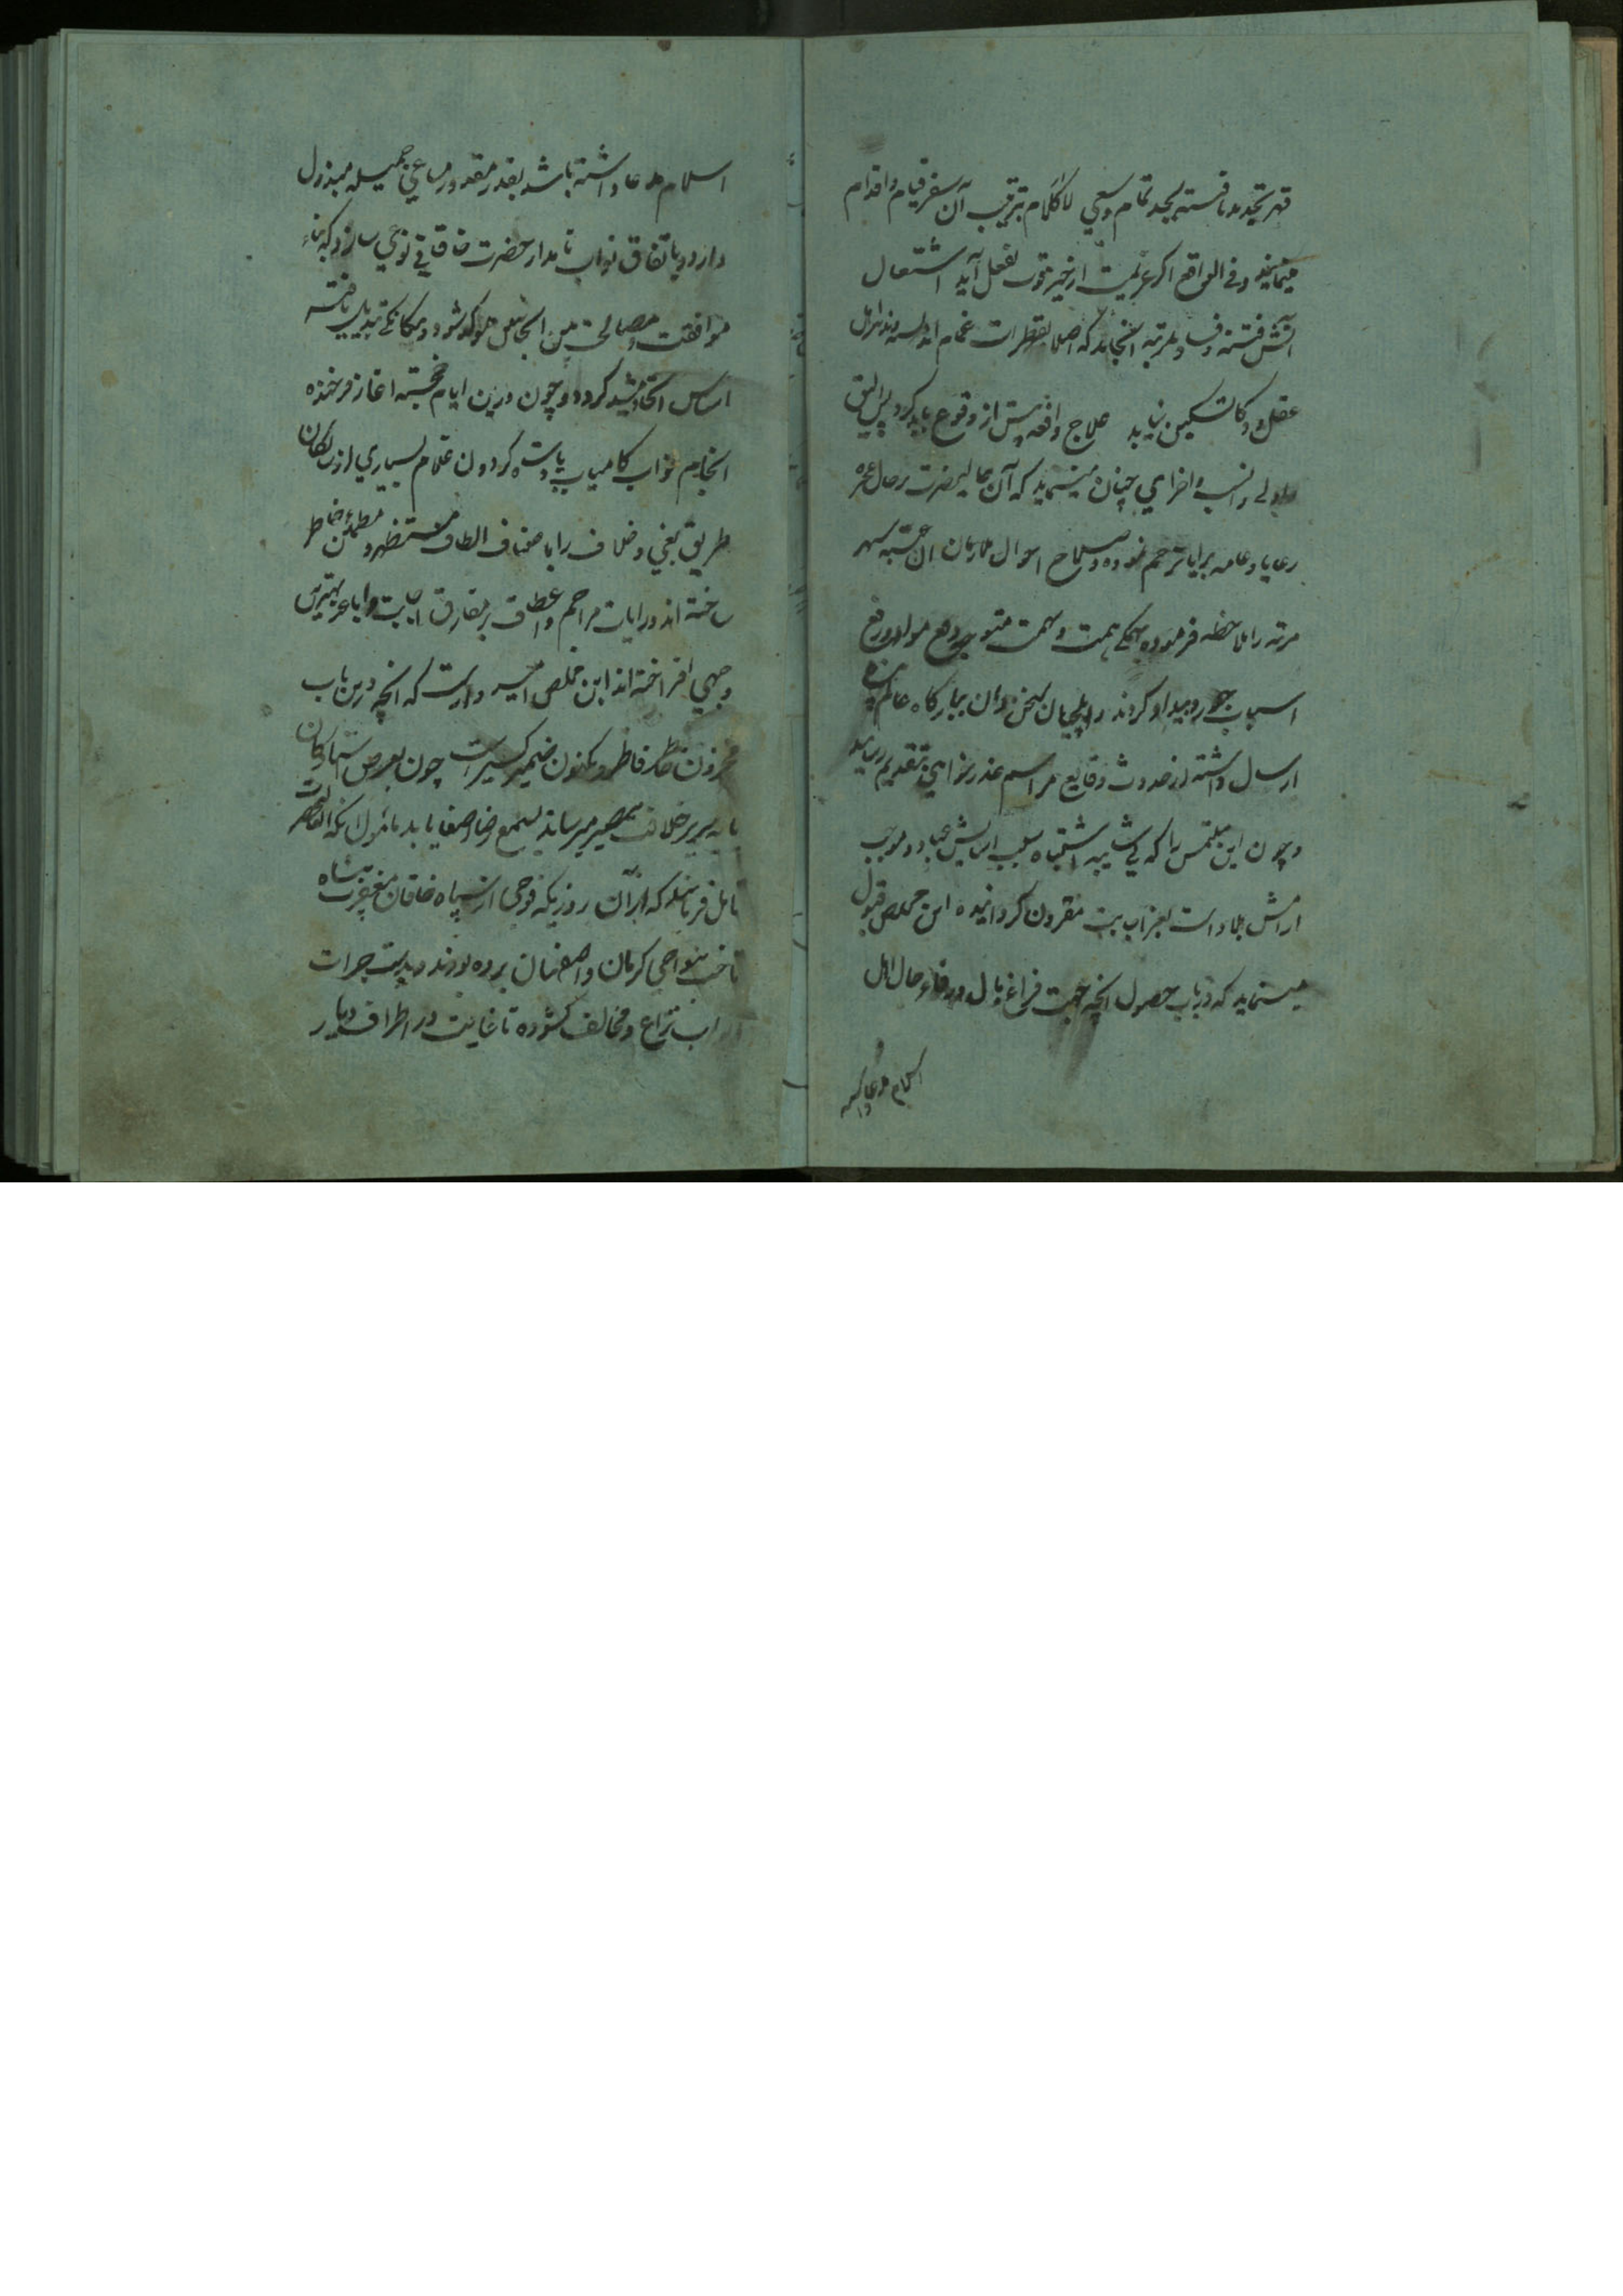 قهر تجدید یافته بجد تمام وسعی لاکلام بترتیب آن سفر قیام واقدام
مینمایند وفی الواقع اگر عزیمت از خیر قوت بفعل آید اشتعال
آتش فتنه وفساد بمرتبه انجامد که اصلا بقطرات غمام
عقل وذکا تسکین نیابد علاج واقعه پیش از وقوع باید کرد پس الیق
واولی وانسب واحری چنان مینماید که آن عالیحضرت بر حال عجزه
رعایا وعامه برایا ترحم نموده وصلاح احوال ملازمان آن عتبه سپهر
مرتبه را ملاحظه فرموده همگی همت ونهمت متوجه دفع مواد ورفع
اسباب جور وبیداد گردند وایلچیان سخن دان ببارگاه عالم پناه
ارسال داشته از حدوث وقایع مراسم عذرخواهی بتقدیم رسانید
وچون این ملتمس را که بی شایبه اشتباه سبب آسایش عباد وموجب
آرامش بلاد است بعز اجابت مقرون گردانیده این مخلص قبول
مینماید که در باب حصول آنچه جهت فراغ بال ورفاه حال اهل
اسلام مدعا داشته
اسلام مدعا داشته باشد بقدر مقدور مساعی جمیله مبذول
دارد وباتفاق نواب نامدار حضرت خاقانی نوعی سازد که بناء
موافقت ومصالحت من الجانبین موکد شود
اساس اتحاد مشید گردد وچون درین ایام خجسته آغاز فرخنده
انجام نواب کامیاب پادشاه گردون غلام بسیاری از سالکان
طریق بغی وخلاف را باصناف الطاف مستظهر ومطمئن خاطر
ساخته اند ورایات مراحم واعطاف بر مفارق اجانب واباعد بهترین
وجهی افراخته اند این مخلص امیدوارست که آنچه درین باب
مخزون خاطر فاطر ومکنون ضمیر کسیرست چون بعرض استادگان
پایه سریر خلافت مصیر میرساند بسمع رضا اصغا یابد مامول آنکه آنحضرت
تامل فرمایند که از آن روز که فوجی از سپاه خاقان مغفرت پناه
تاخت بنواحی کرمان واصفهان برده بودند وبدست جرات
ابواب نزاع ومخالفت گشوده تا غایت در اطراف دیار